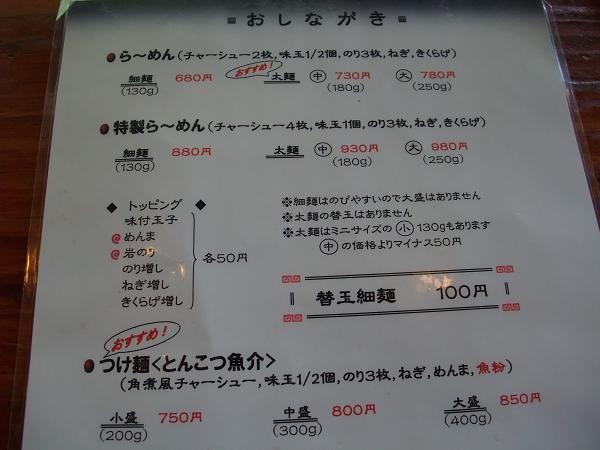 おしながき
ら〜めん(チャーシュー2枚,味玉1/2個,のり3枚,ねぎ,きくらげ)
おすすめ!
細麺 680円 太麺 中 730円 大 780円
(130g) (180g) (250g)
特製ら〜めん(チャーシュー4枚,味玉1個,のり3枚,ねぎ,きくらげ)
細麺 880円 太麺 中 930円 大 980円
(130g) (180g) (250g)
◆ トッピング ◆
味付玉子
@めんま
@岩のり
のり増し
ねぎ増し
きくらげ増し
各50円
※細麺はのびやすいので大盛はありません
※太麺の替玉はありません
※太麺はミニサイズの 小 130gもあります
中 の価格よりマイナス50円
替玉細麺 100円
おすすめ!
つけ麺<とんこつ魚介>
(角煮風チャーシュー,味玉1/2個,のり3枚,ねぎ,めんま,魚粉)
小盛 750円 中盛 800円 大盛 850円
(200g) (300g) (400g)